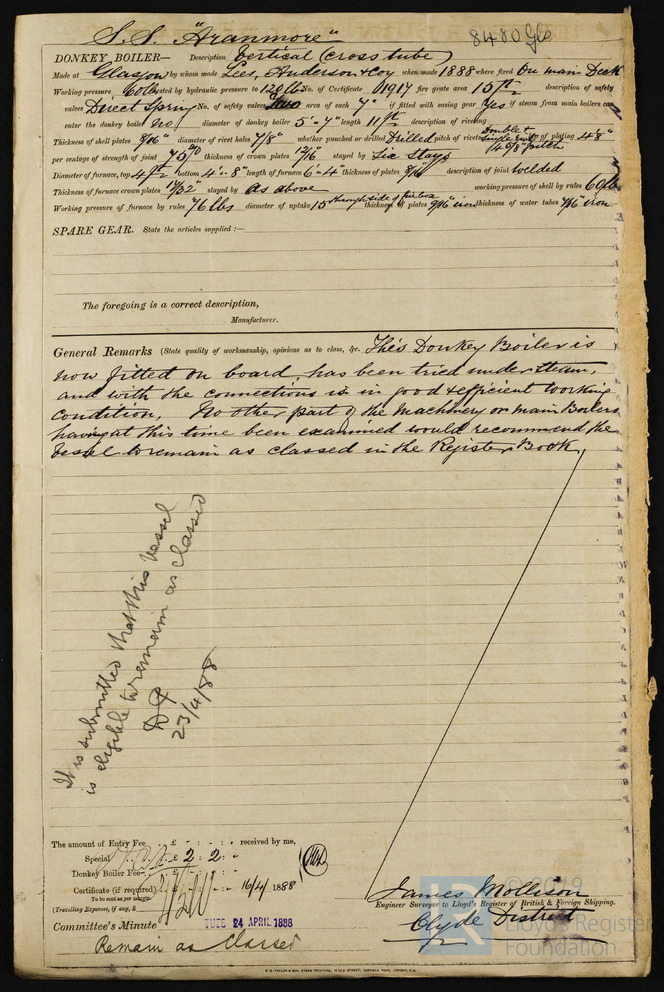 S.S. "Aranmore"
8480 Gls
DONKEY BOILER— Description Vertical (cross tube)
Made at Glasgow by whom made Lees, Anderson & Coy when made 1888 where fixed On main Deck
Working pressure 60 lbs tested by hydraulic pressure to 120 lbs No. of Certificate 1917 fire grate area 15 ft description of safety
valves Direct Spring No. of safety valves two area of each 7" if fitted with easing gear Yes if steam from main boilers can
enter the donkey boiler no diameter of donkey boiler 5'-7" length 11 ft description of riveting Double &
Thickness of shell plates 9/16" diameter of rivet holes 7/8" whether punched or drilled Drilled pitch of rivets lap of plating 4 5/8"
per centage of strength of joint 75 thickness of crown plates 12/16 stayed by Six Stays
Diameter of furnace, top 4 ft bottom 4'-8" length of furnace 6'-4 thickness of plates 8/16 description of joint welded
Thickness of furnace crown plates 19/32" stayed by As above working pressure of shell by rules 60 lb
Working pressure of furnace by rules 76 lbs diameter of uptake 15" through side of thickness of plates 9/16" iron thickness of water tubes 7/16" iron
SPARE GEAR. State the articles supplied:—
The foregoing is a correct description,
Manufacturer.
General Remarks (State quality of workmanship, opinions as to class, &c. This Donkey Boiler is
now fitted on board, has been tried under steam,
and with the connections is in good & efficient working
condition, No other part of the machinery or main Boilers
having at this time been examined would recommend the
vessel to remain as classed in the Register Book.
It is submitted that this vessel
is eligible to remain as classed
23/4/88
The amount of Entry Fee £ : : received by me,
Special £ 2 : 2 :
Donkey Boiler Fee £ : :
Certificate (if required) £ : : 16/4/1888
To be sent as per margin.
(Travelling Expenses, if any, £
James Mollison
Engineer Surveyor to Lloyd's Register of British & Foreign Shipping.
Clyde District
Committee's Minute TUES 24 APRIL 1888
Remain as Classed
© 2019
LR
Lloyd's Register
Foundation